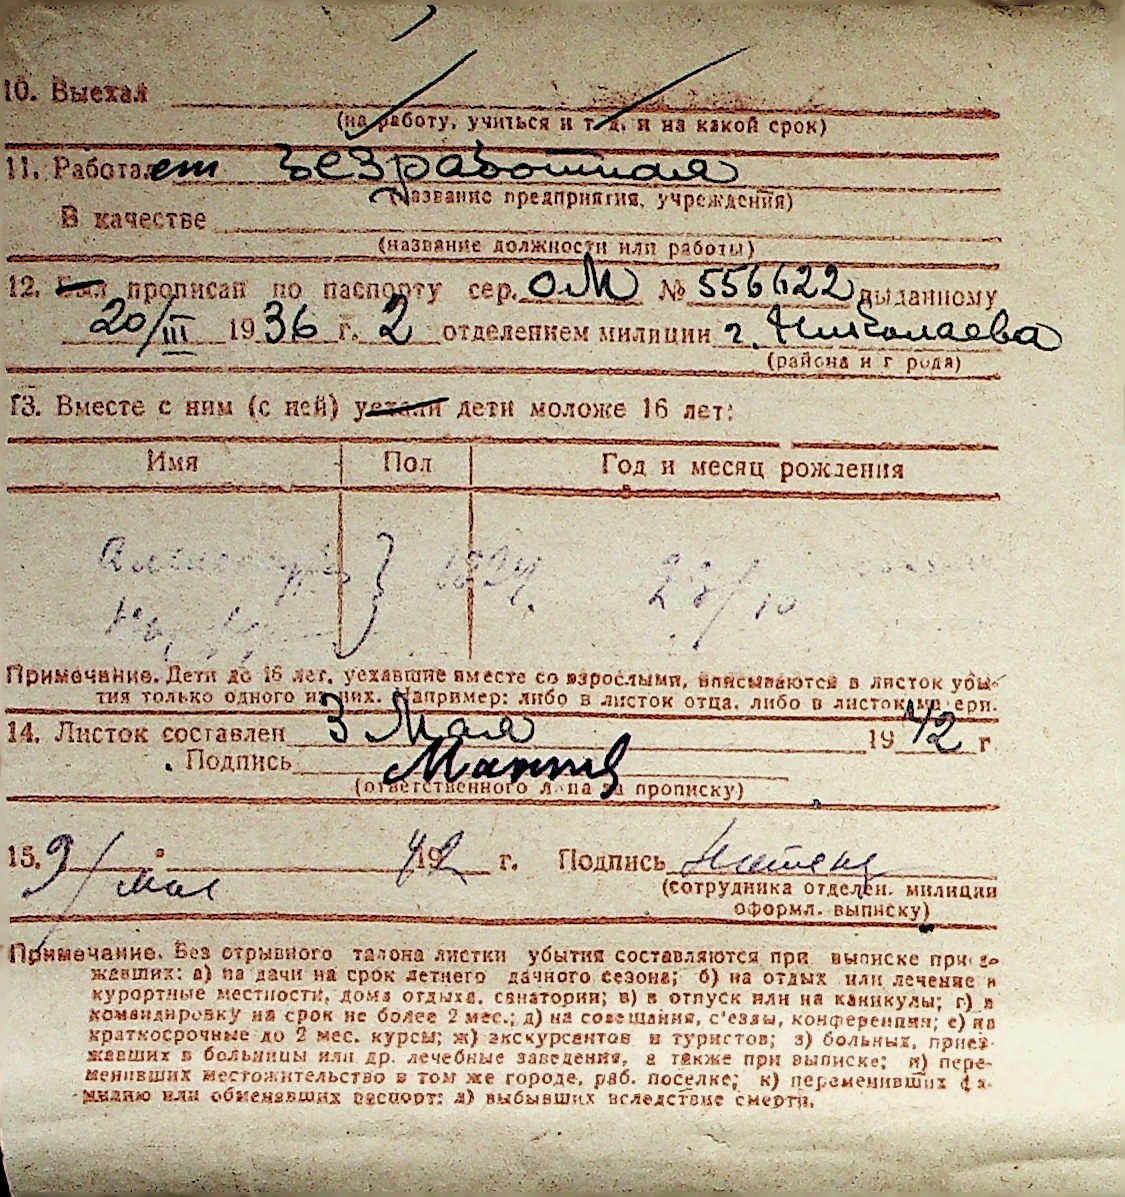 10. Выехал
(на работу, учиться и т. д. и на какой срок)
11. Работает безработная
(название предприятия, учреждения)
В качестве
(название должности или работы)
12. Был прописан по паспорту сер. ОМ № 556622 выданному
20/III 1936 г. 2 отделением милиции г. Николаева
(района и города)
13. Вместе с ним (с ней) уехали дети моложе 16 лет:
Имя Пол Год и месяц рождения
Примечание. Дети до 16 лет, уехавшие вместе со взрослыми, вписываются в листок убы-
тия только одного из них. Например: либо в листок отца, либо в листок матери.
14. Листок составлен 3 Мая 1942 г.
Подпись
(ответственного лица за прописку)
15. 9/мая 42 г. Подпись
(сотрудника отделен. милиции
оформл. выписку)
Примечание. Без отрывного талона листки убытия составляются при выписке приез-
жавших: а) на дачи на срок летнего дачного сезона; б) на отдых или лечение в
курортные местности, дома отдыха, санатории; в) в отпуск или на каникулы; г) в
командировку на срок не более 2 мес.; д) на совещания, с'езды, конференции; е) на
краткосрочные до 2 мес. курсы; ж) экскурсантов и туристов; з) больных, приез-
жавших в больницы или др. лечебные заведения, а также при выписке; и) пере-
менивших местожительство в том же городе, раб. поселке; к) переменивших фа-
милию или обменявших паспорт; л) выбывших вследствие смерти.